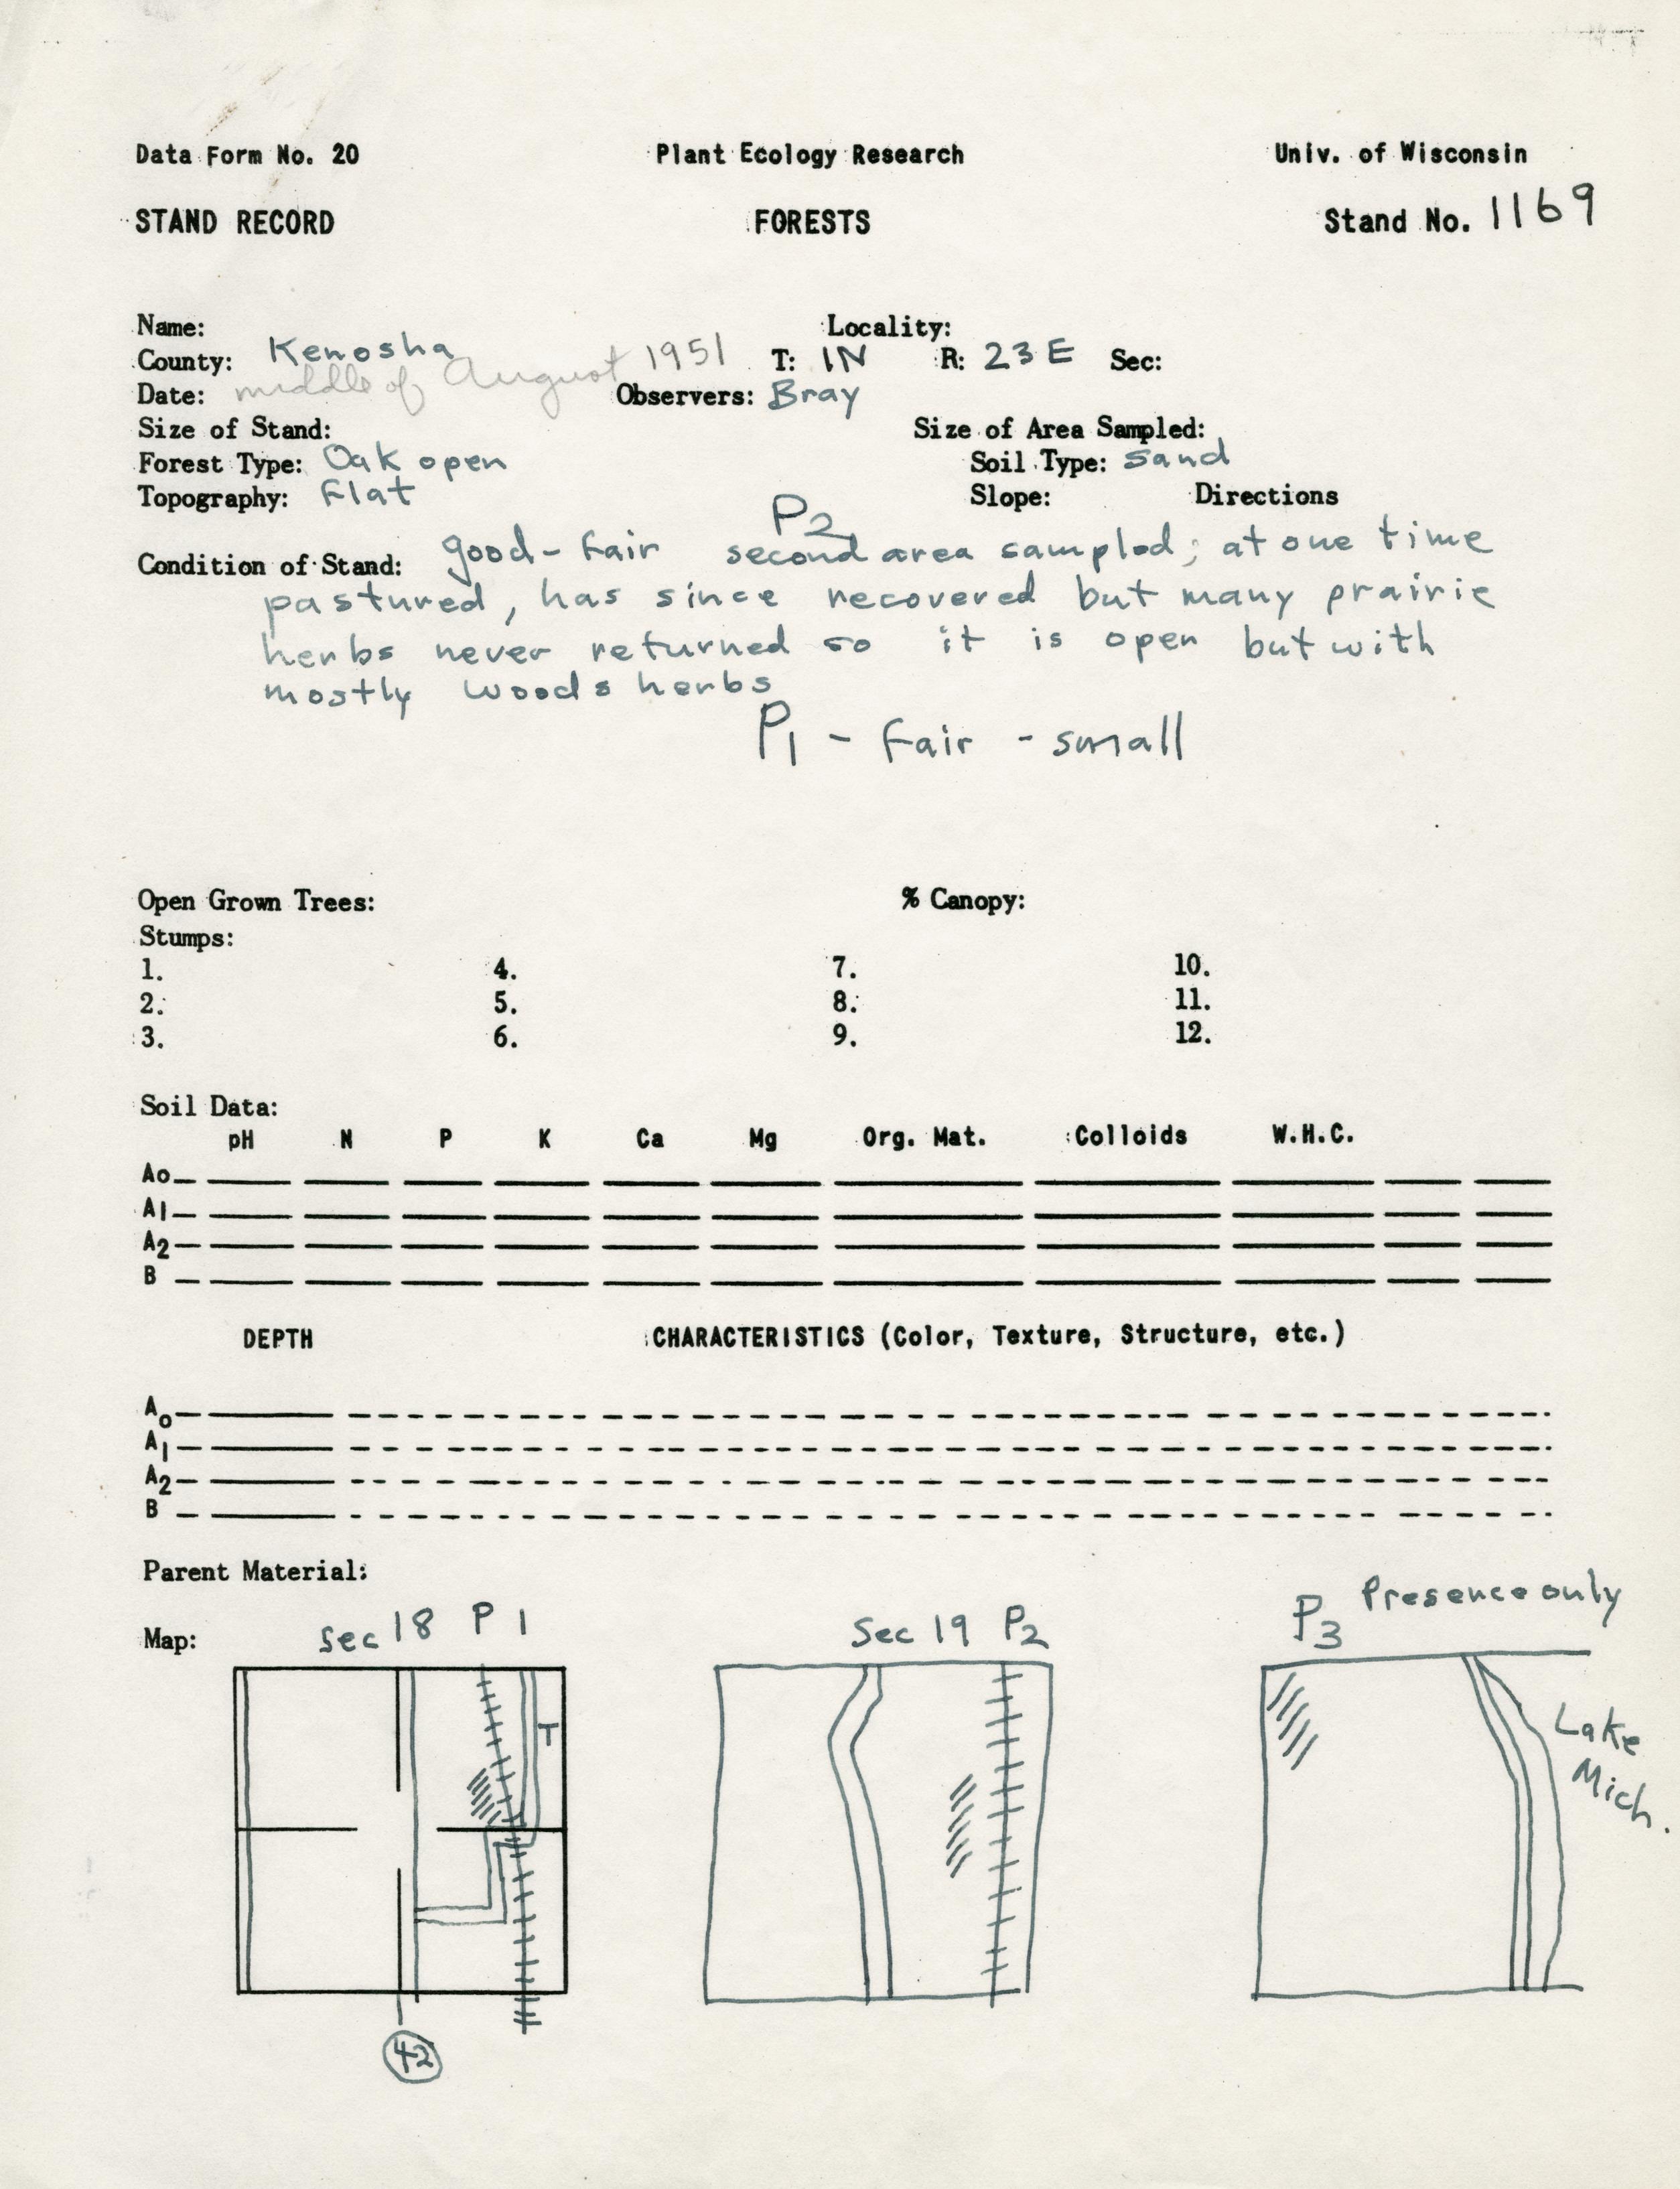 Data Form No. 20 Plant Ecology Research Univ. of Wisconsin
STAND RECORD FORESTS Stand No. 1169
Name: Locality:
County: Kenosha T: 1N R: 23E Sec:
Date: middle of August 1951 Observers: Bray
Size of Stand: Size of Area Sampled:
Forest Type: Oak open Soil Type: Sand
Topography: Flat Slope: Directions
P2
Condition of Stand: good-fair second area sampled; at one time
pastured, has since recovered but many prairie
herbs never returned so it is open but with
mostly woods herbs
P1 - fair - small
Open Grown Trees: % Canopy:
Stumps:
1. 4. 7. 10.
2. 5. 8. 11.
3. 6. 9. 12.
Soil Data:
pH N P K Ca Mg Org. Mat. Colloids W.H.C.
Ao
A1
A2
B
DEPTH CHARACTERISTICS (Color, Texture, Structure, etc.)
Ao
A1
A2
B
Parent Material:
Map: Sec 18 P1 Sec 19 P2 P3 Presence only
T
Lake
Mich.
42